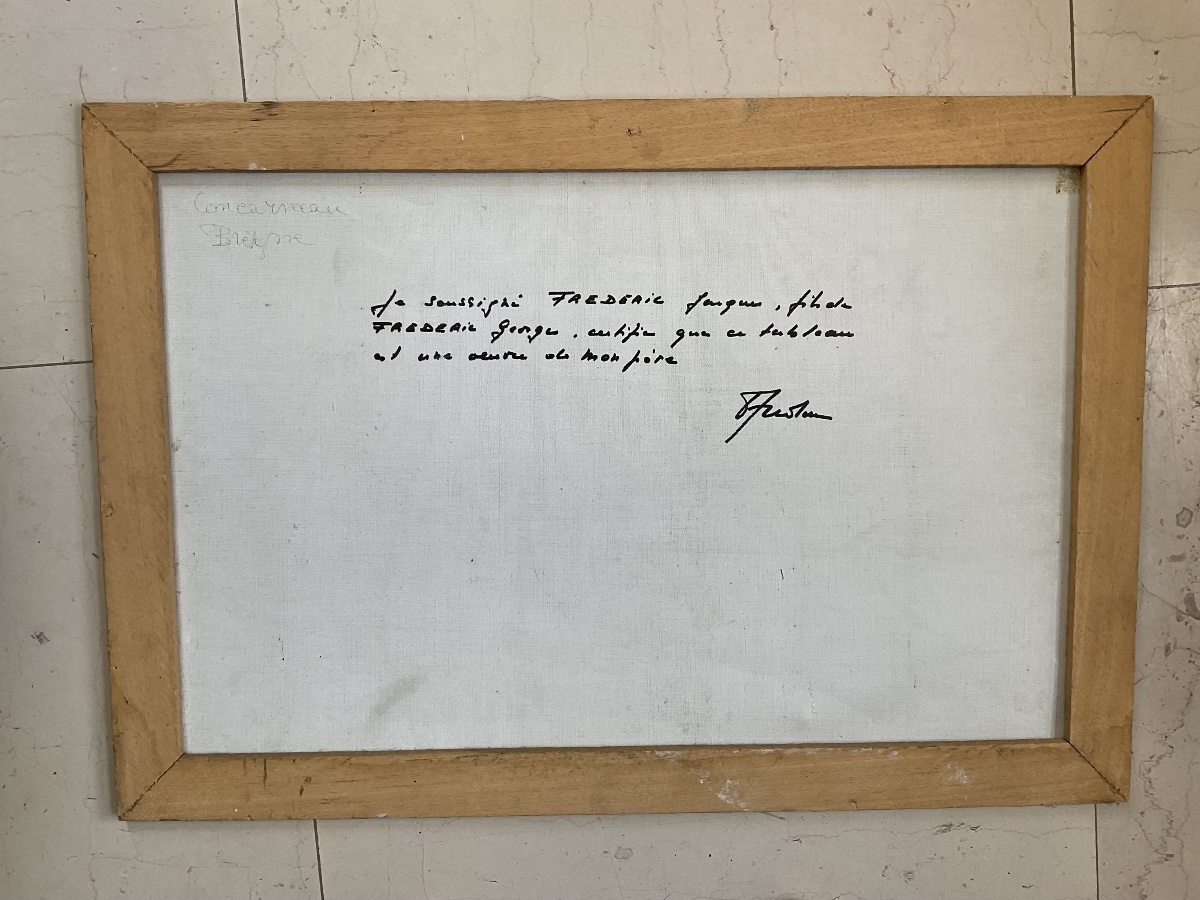 Concarneau
Bretagne
Je soussigné FREDERIC Jacques, fils de
FREDERIC Georges, certifie que ce tableau
est une oeuvre de mon père